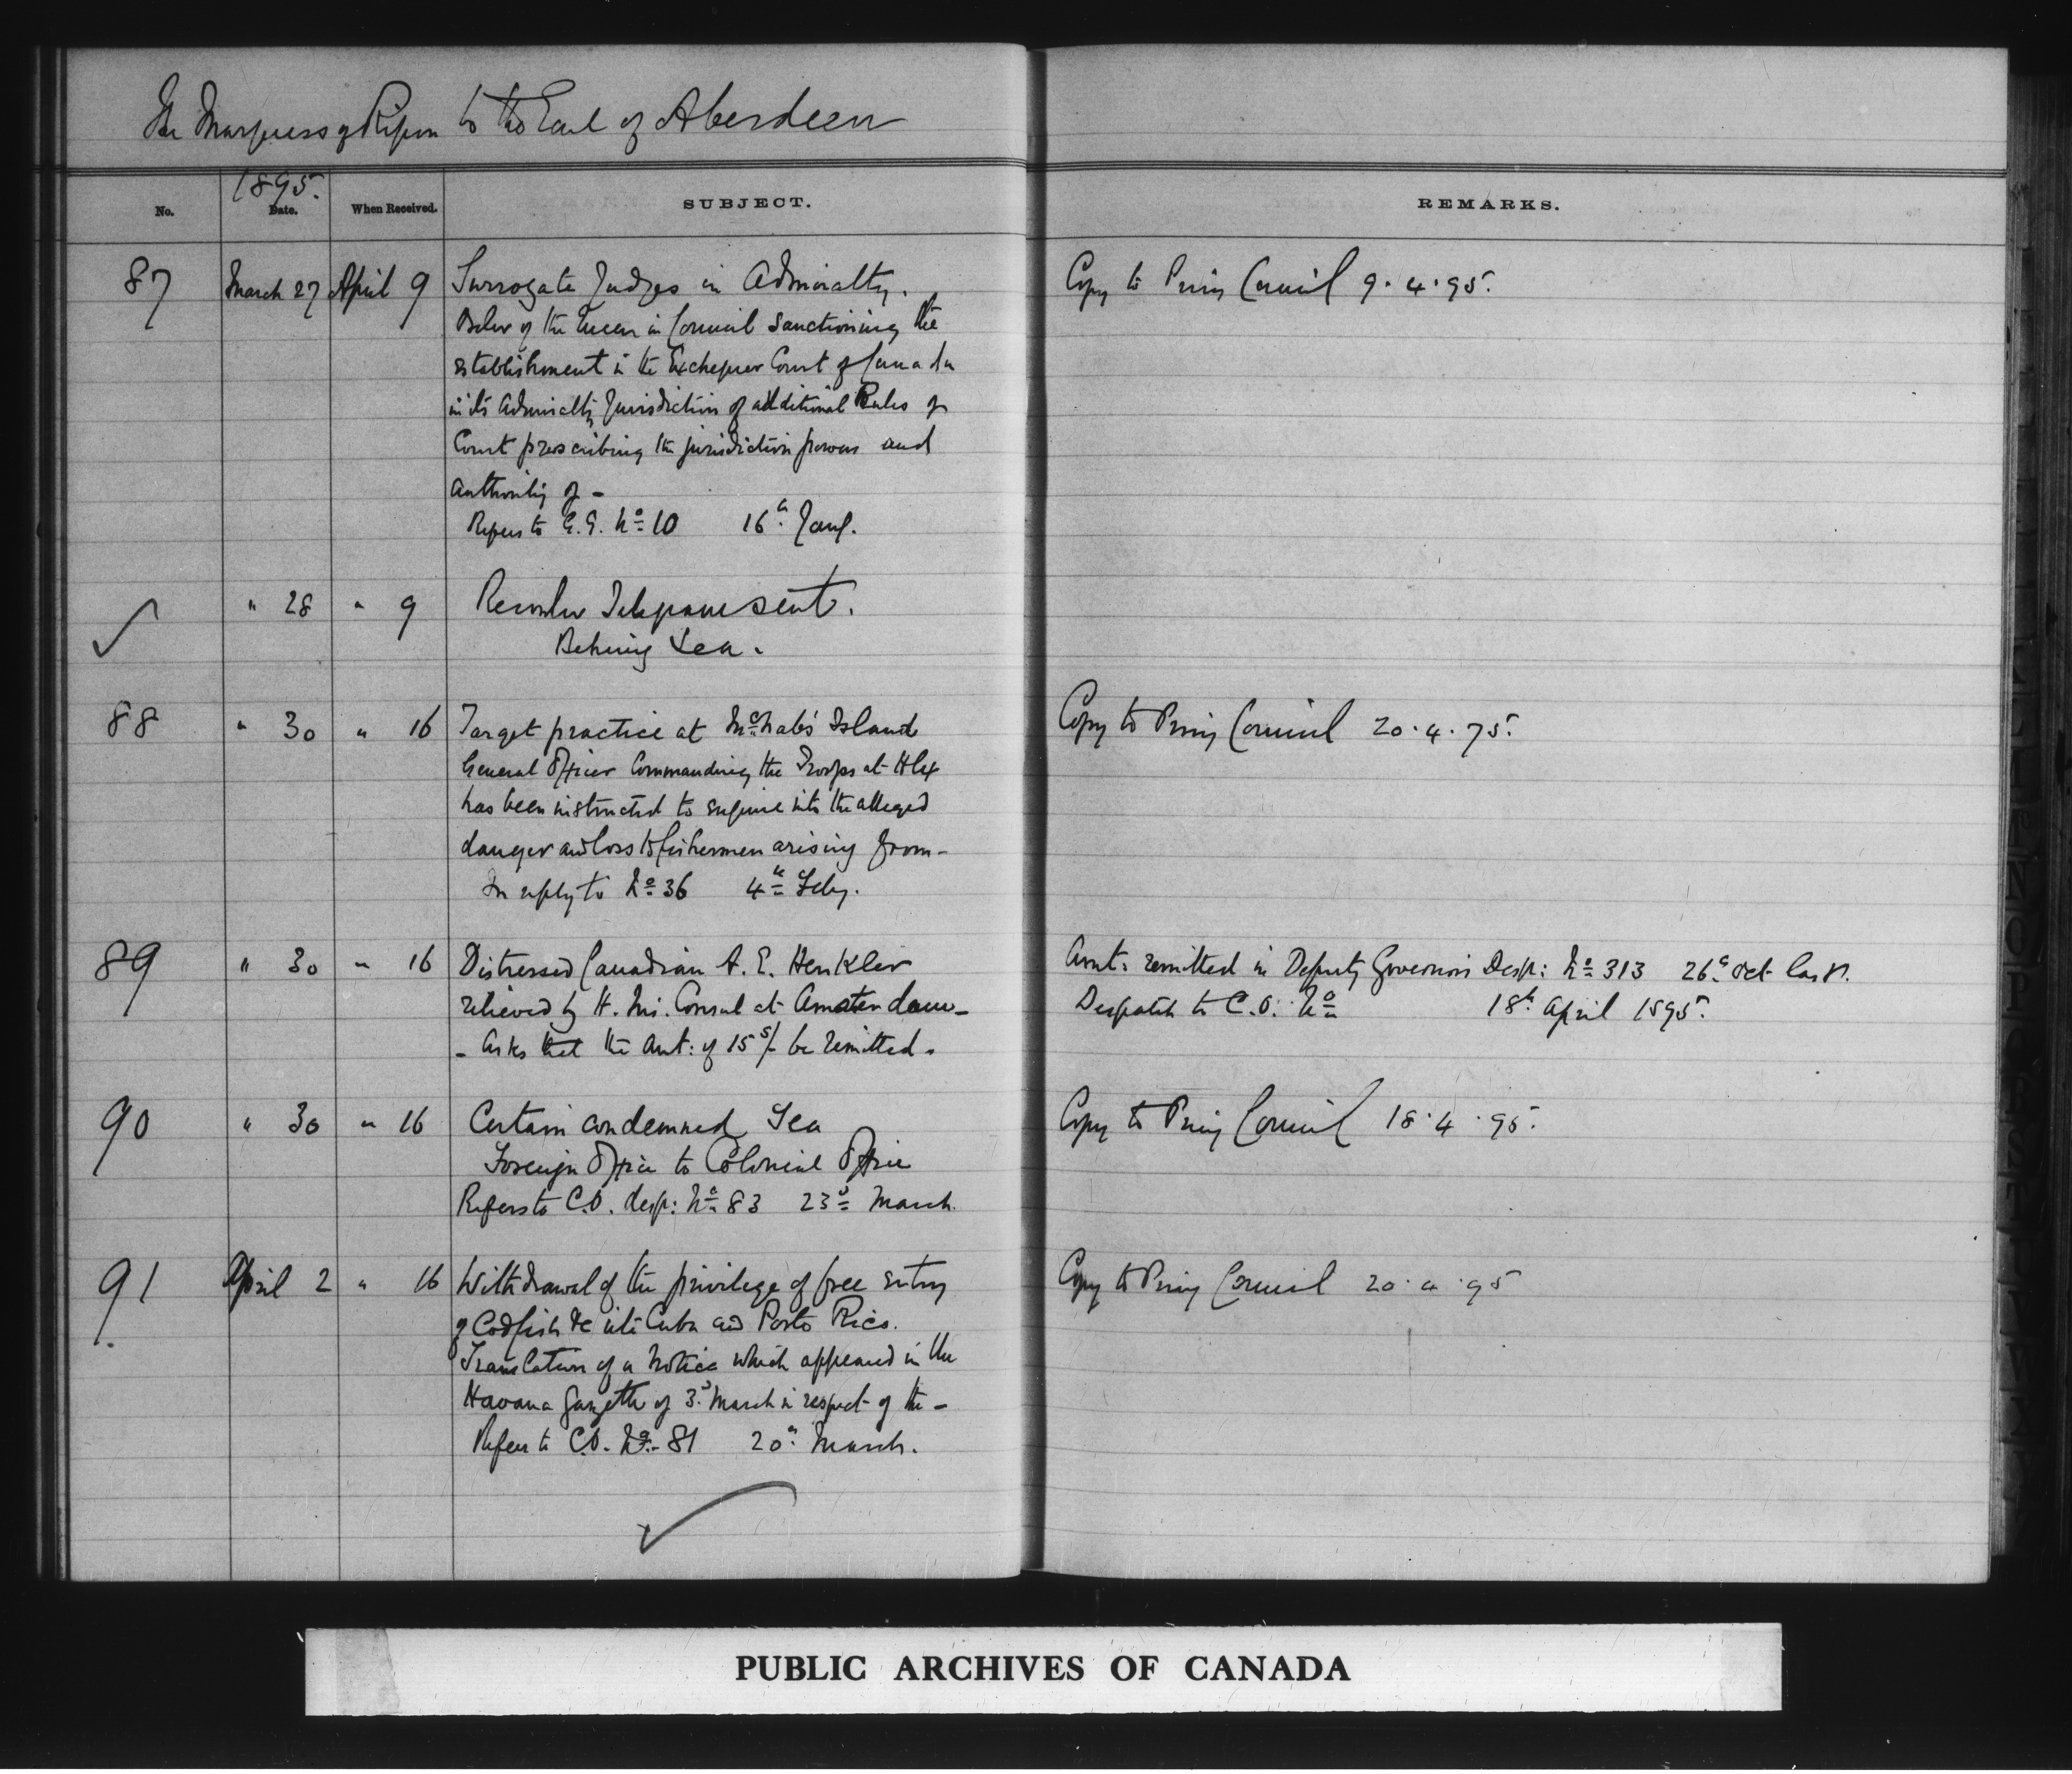 The Marquess of Ripon to the Earl of Aberdeen
1895.
No. Date. When Received. SUBJECT. REMARKS.
87 March 27 April 9 Surrogate Judges in Admiralty. Copy to Privy Council 9.4.95.
Order of the Queen in Council sanctioning the
establishment in the Exchequer Court of Canada
in its Admiralty Jurisdiction of additional Rules of
Court prescribing the jurisdiction powers and
authority of -
Refers to G.G. No 10 16th Jany.
" 28 " 9 Recorder Telegram sent.
Behring Sea.
88 " 30 " 16 Target practice at McNab's Island Copy to Privy Council 20.4.75.
General Officer Commanding the Troops at Hfx
has been instructed to enquire into the alleged
danger and loss to fishermen arising from -
In reply to No 36 4th Feby.
89 " 30 " 16 Distressed Canadian A. E. Henkler Amt: remitted in Deputy Governor's Desp: No 313 26th Oct last.
relieved by H. M. Consul at Amsterdam - Despatch to C.O. No 18th April 1895.
- Asks that the Amt: of 15s/- be remitted.
90 " 30 " 16 Certain condemned Sea Copy to Privy Council 18.4.95.
Foreign Office to Colonial Office
Refers to C.O. desp: No 83 23d March.
91 April 2 " 16 Withdrawal of the privilege of free entry Copy to Privy Council 20.4.95
of Codfish &c into Cuba and Porto Rico.
Translation of a Notice which appeared in the
Havana Gazette of 3d March in respect of the -
Refers to C.O. No - 81 20th March.
PUBLIC ARCHIVES OF CANADA